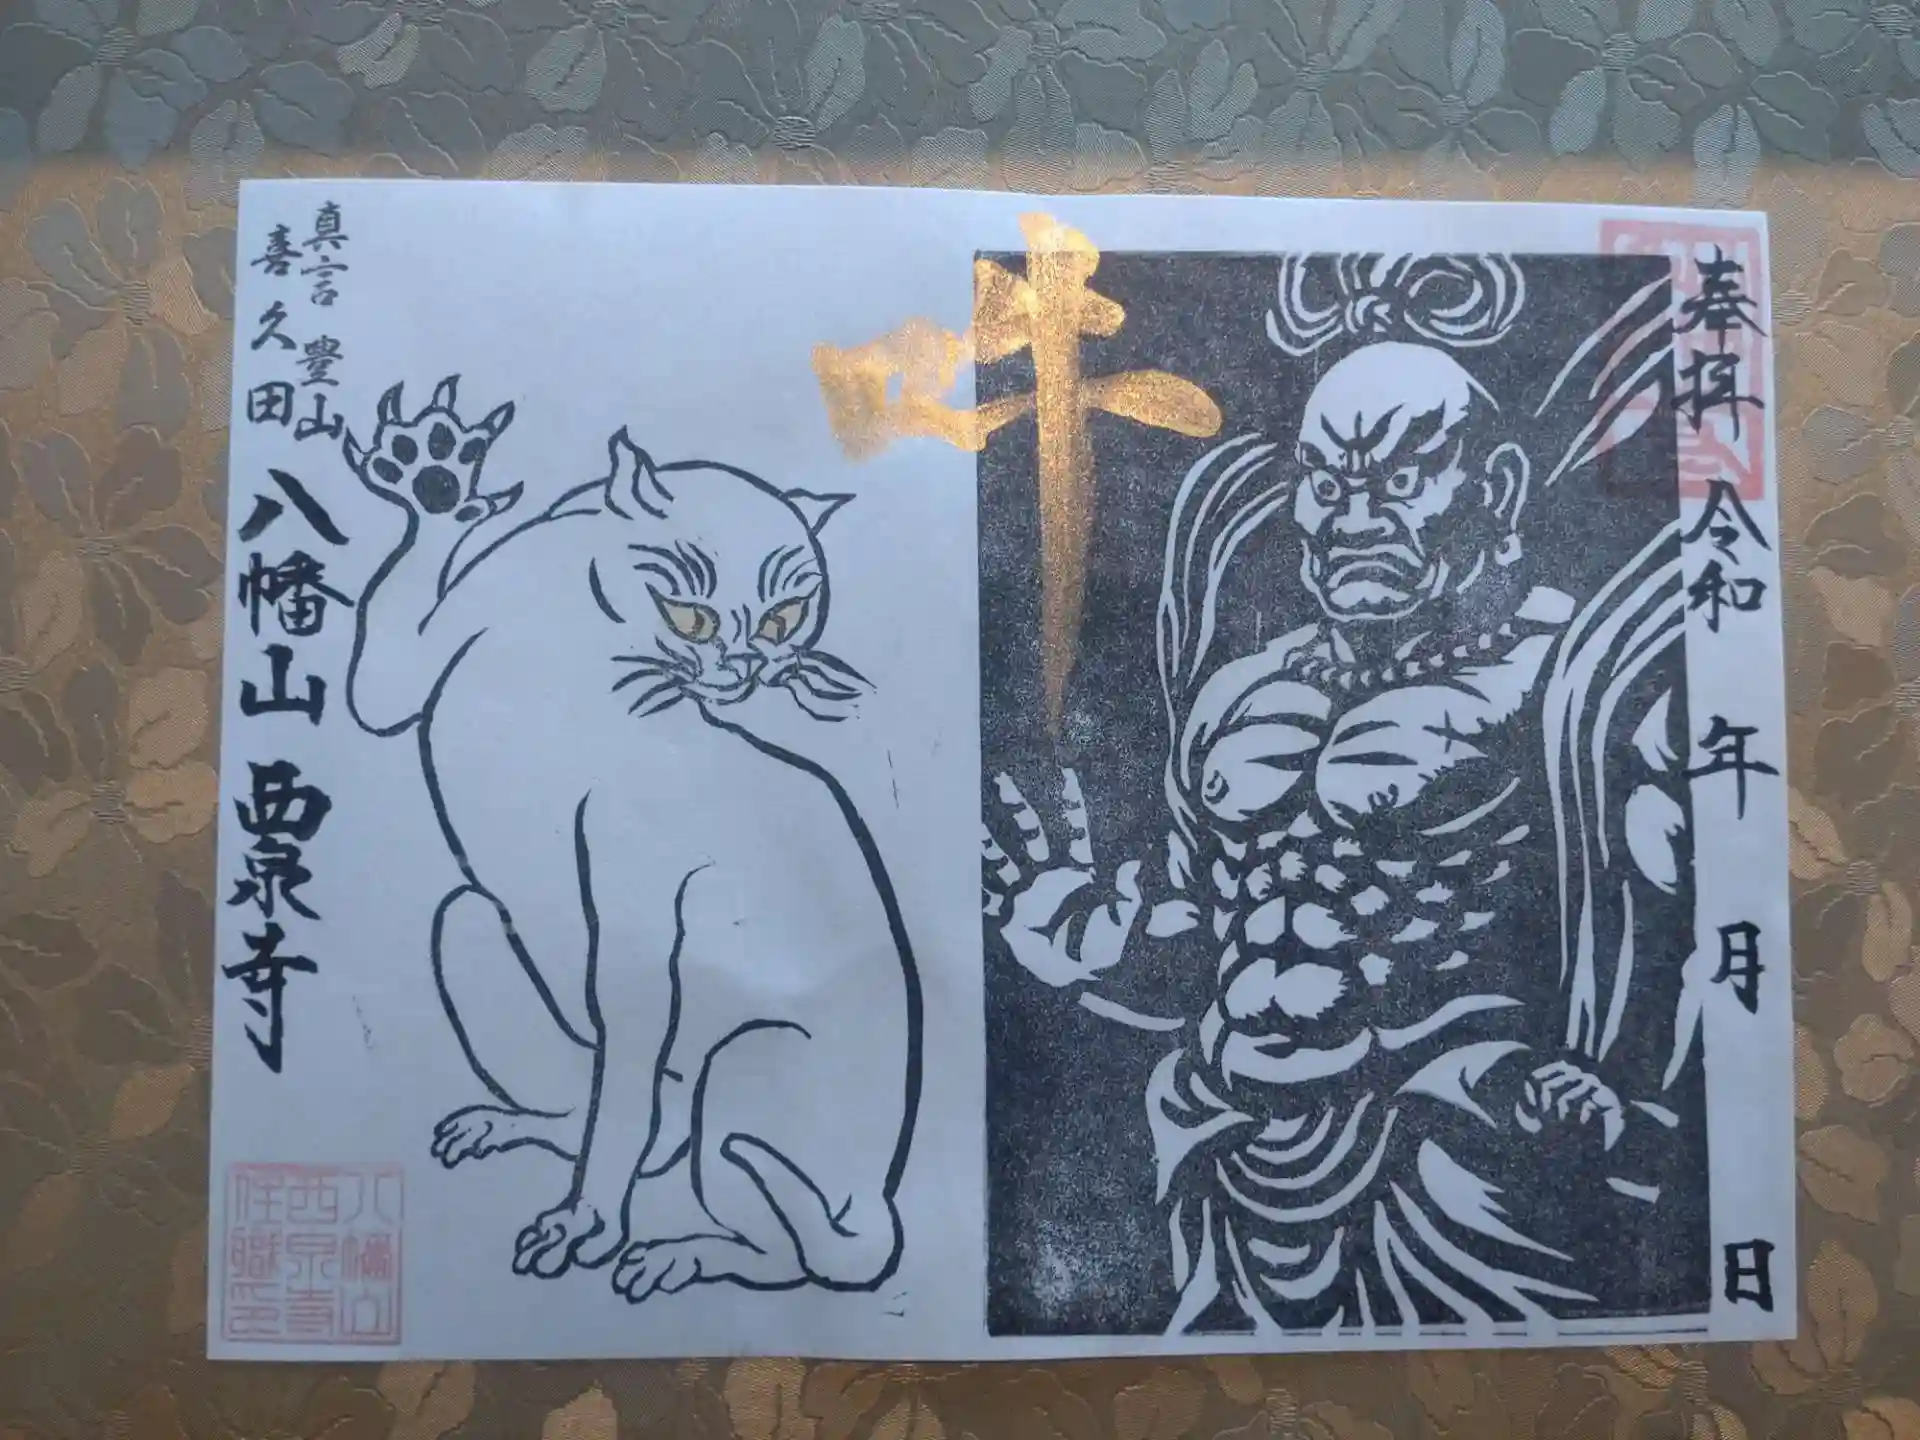 奉拝 令和 年 月 日
吽
真言 豊山
喜久田
八幡山 西泉寺
八幡山
西泉寺
住職印